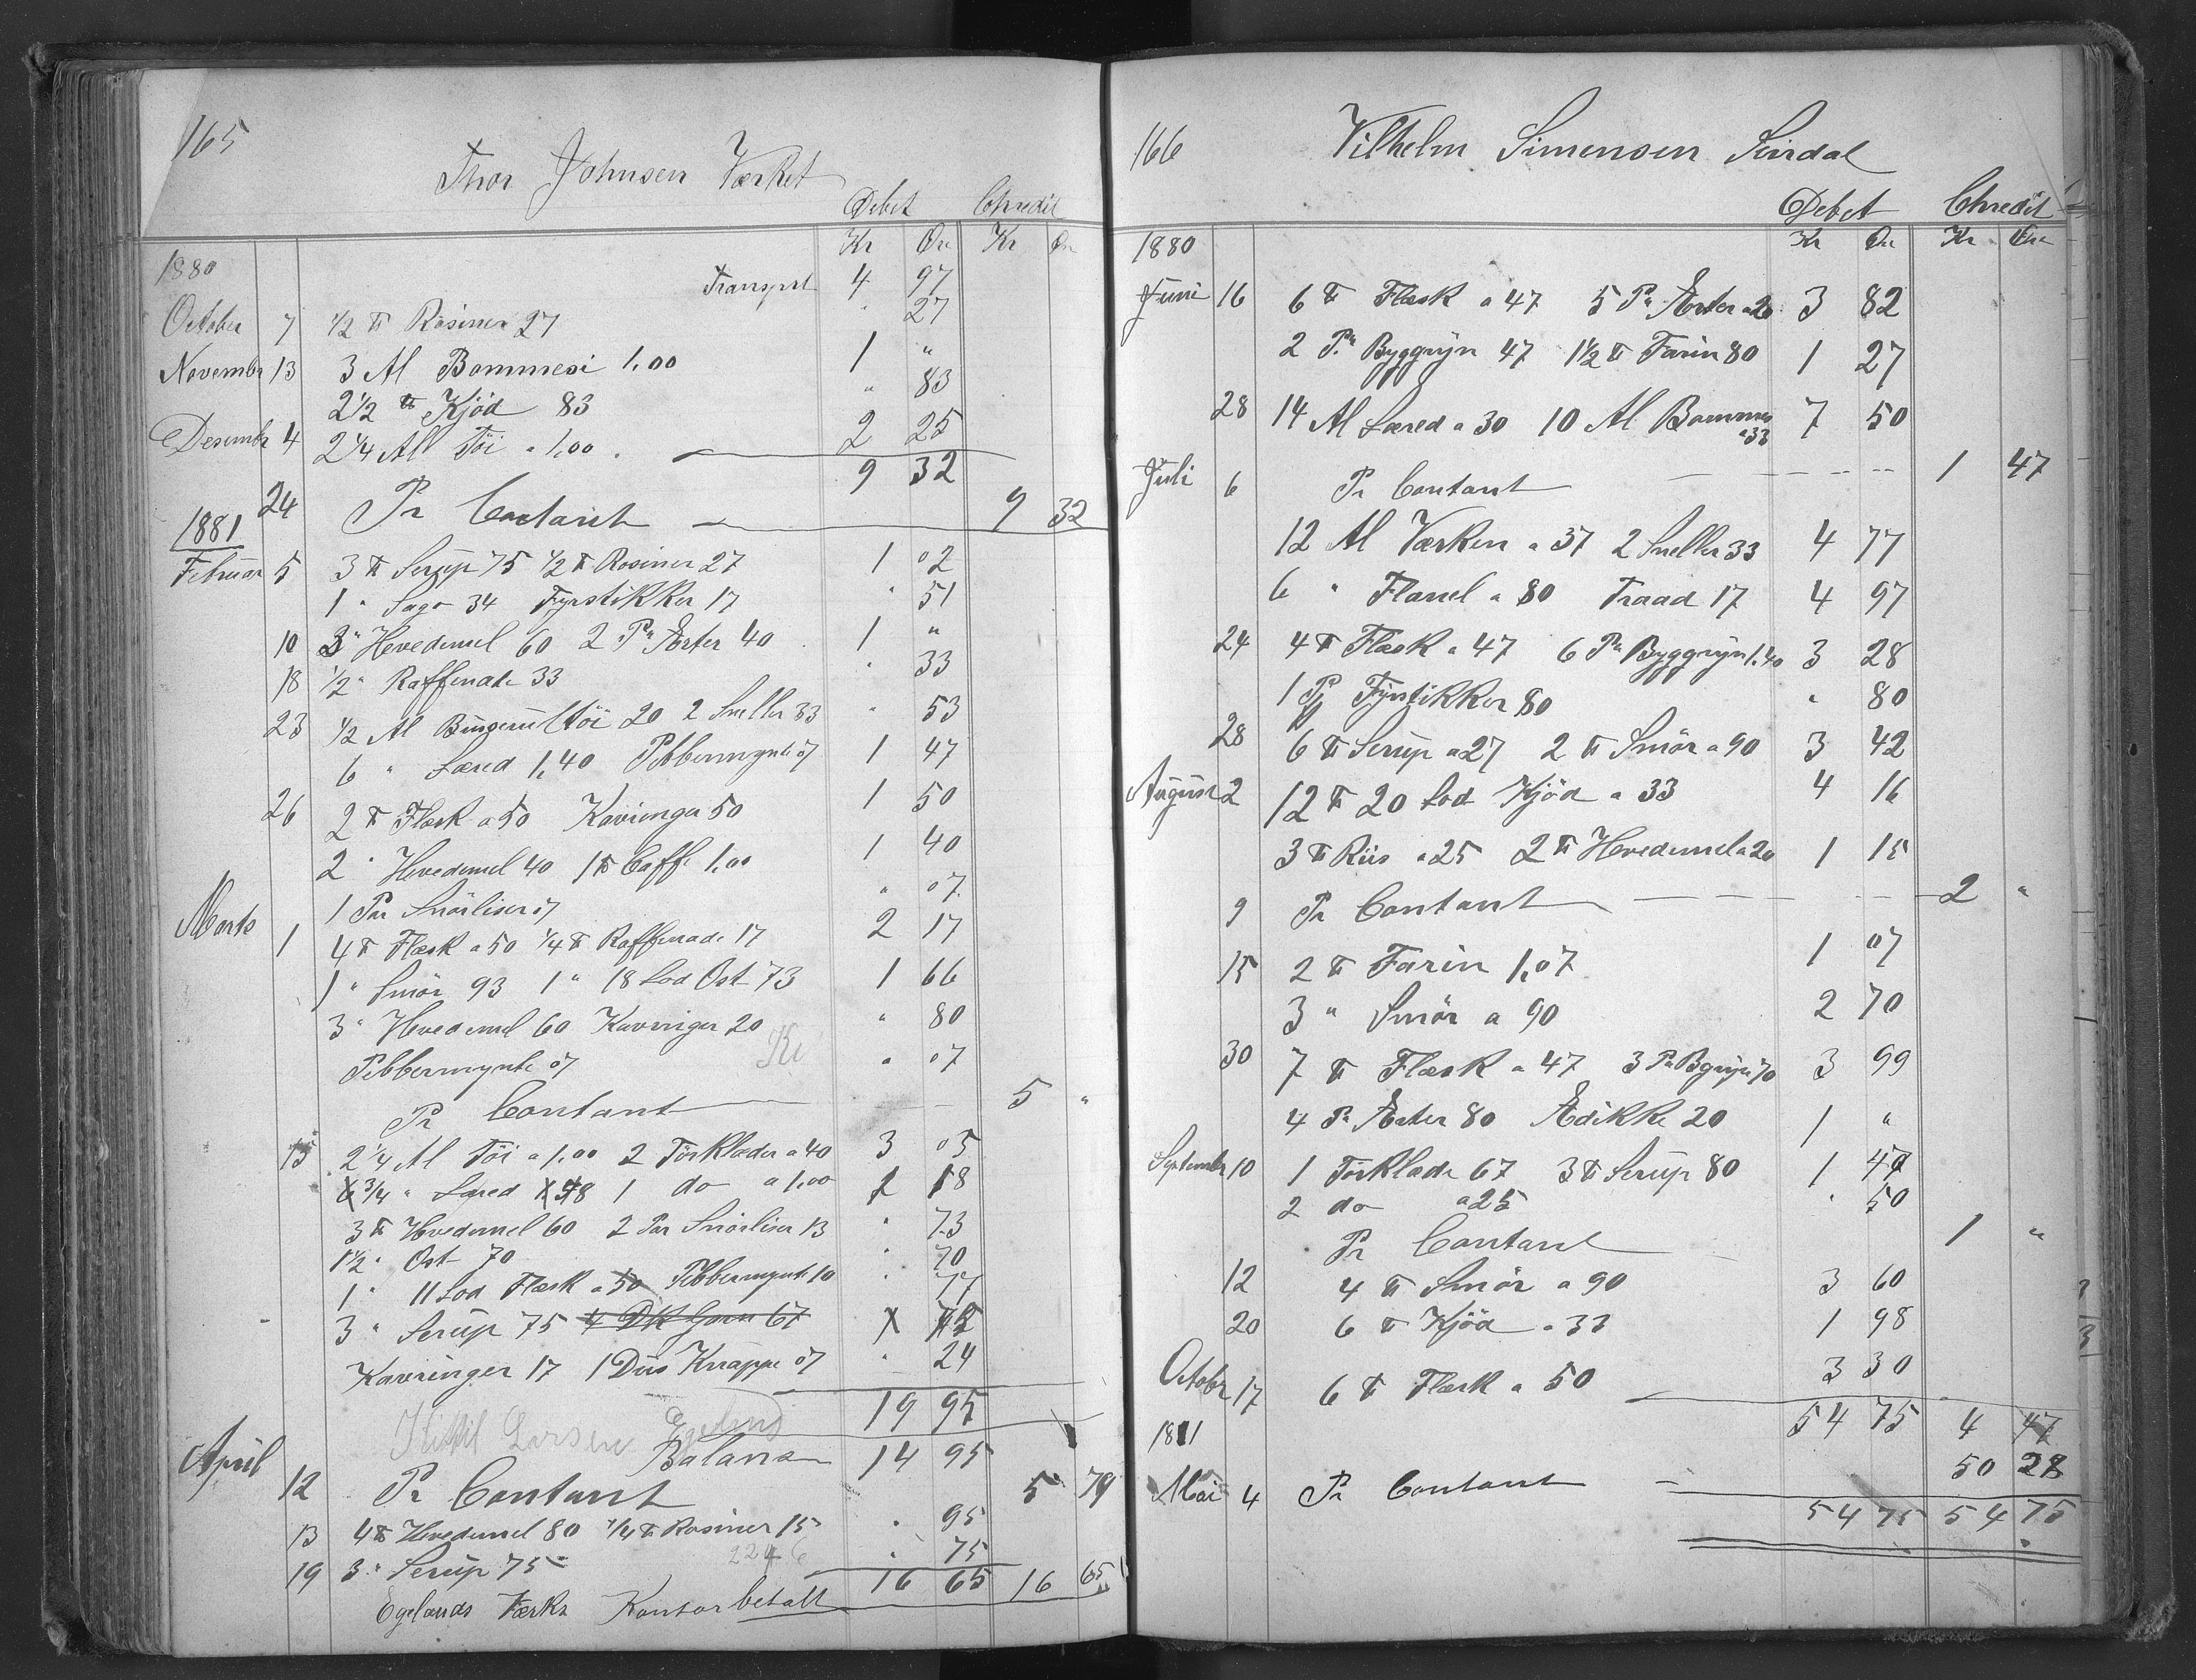 165
Thor Johnsen Værket
Debet Chredit
Kr Øre Kr Øre
1880 Transport 4 97
October 7 1/2 ℔ Rosiner 27 " 27
Novembr 13 3 Al Bommesi 1,00 1 "
2 1/2 ℔ Kjöd 83 " 83
Desembr 4 2 1/4 Al Töi a 1,00 2 25
9 32
24 Pr Contant 9 32
1881
Februar 5 3 ℔ Serup 75 1/2 ℔ Rosiner 27 1 02
1 " Sago 34 Fyrstikker 17 " 51
10 3 " Hvedemel 60 2 Pr Ærter 40 1 "
18 1/2 " Raffenade 33 " 33
23 1/2 Al töi 20 2 Sneller 33 " 53
6 " Læred 1,40 Pebbermynte 07 1 47
26 2 ℔ Flæsk a 50 Kavringer 50 1 50
2 " Hvedemel 40 1 ℔ Caffe 1,00 1 40
1 Par Snörliser 07 " 07
Marts 1 4 ℔ Flæsk a 50 1/4 ℔ Raffenade 17 2 17
1 " Smör 93 1 " 18 Lod Ost 73 1 66
3 " Hvedemel 60 Kavringer 20 " 80
Pebbermynte 07 " 07
Pr Contant 5 "
15 2 1/4 Al Töi a 1,00 2 Törklæder a 40 3 05
3/4 " Læred 18 1 do a 1,00 1 18
3 ℔ Hvedemel 60 2 Par Snörliser 13 " 73
1 1/2 " Ost 70 " 70
1 " 11 Lod Flæsk a 50 Pebbermynte 10 " 77
3 " Serup 75 4 DK Garn 67 75
Kavringer 17 1 Dus Knappe 07 " 24
19 95
Kittil Larsen Egeland
Balanse 14 95
April 12 Pr Contant 5 79
13 4 ℔ Hvedemel 80 1/4 ℔ Rosiner 15 " 95
19 3 " Serup 75 " 75
16 65 16 65
Egelands Værks Kontor betalt
166
Vilhelm Simensen Surdal
Debet Chredit
Kr Øre Kr Øre
1880
Juni 16 6 ℔ Flæsk a 47 5 Pr Ærter a 20 3 82
2 Pr Byggryn 47 1 1/2 ℔ Farin 80 1 27
28 14 Al Læred a 30 10 Al Bommes a 33 7 50
Juli 6 Pr Contant 1 47
12 Al Værken a 37 2 Sneller 33 4 77
6 " Flanel a 80 Traad 17 4 97
24 4 ℔ Flæsk a 47 6 Pr Byggryn 1,40 3 28
1 Pk Fyrstikker 80 " 80
28 6 ℔ Serup a 27 2 ℔ Smör a 90 3 42
August 2 12 ℔ 20 Lod Kjöd a 33 4 16
3 ℔ Riis a 25 2 ℔ Hvedemel a 20 1 15
9 Pr Contant 2 "
15 2 ℔ Farin 1,07 1 07
3 " Smör a 90 2 70
30 7 ℔ Flæsk a 47 3 Pr Bgryn 70 3 99
4 Pr Ærter 80 Ædikke 20 1 "
Septembr 10 1 Törklæde 67 3 ℔ Serup 80 1 47
2 do a 25 " 50
Pr Contant 1 "
12 4 ℔ Smör a 90 3 60
20 6 ℔ Kjöd a 33 1 98
Octobr 17 6 ℔ Flæsk a 50 3 30
54 75 4 47
1881 50 28
Mai 4 Pr Contant
54 75 54 75